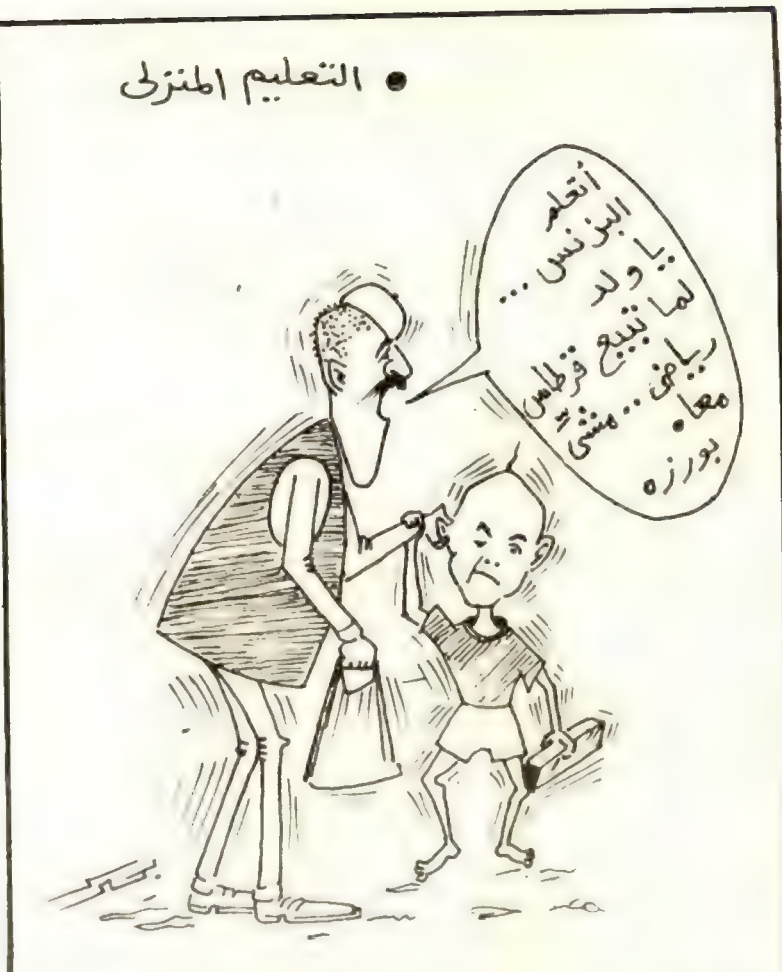 • التعليم المنزلى
أتعلم
البزنس ...
يا ولد
لما تبيع قرطاس
رياضى .. مشّى
معاه
بورزه